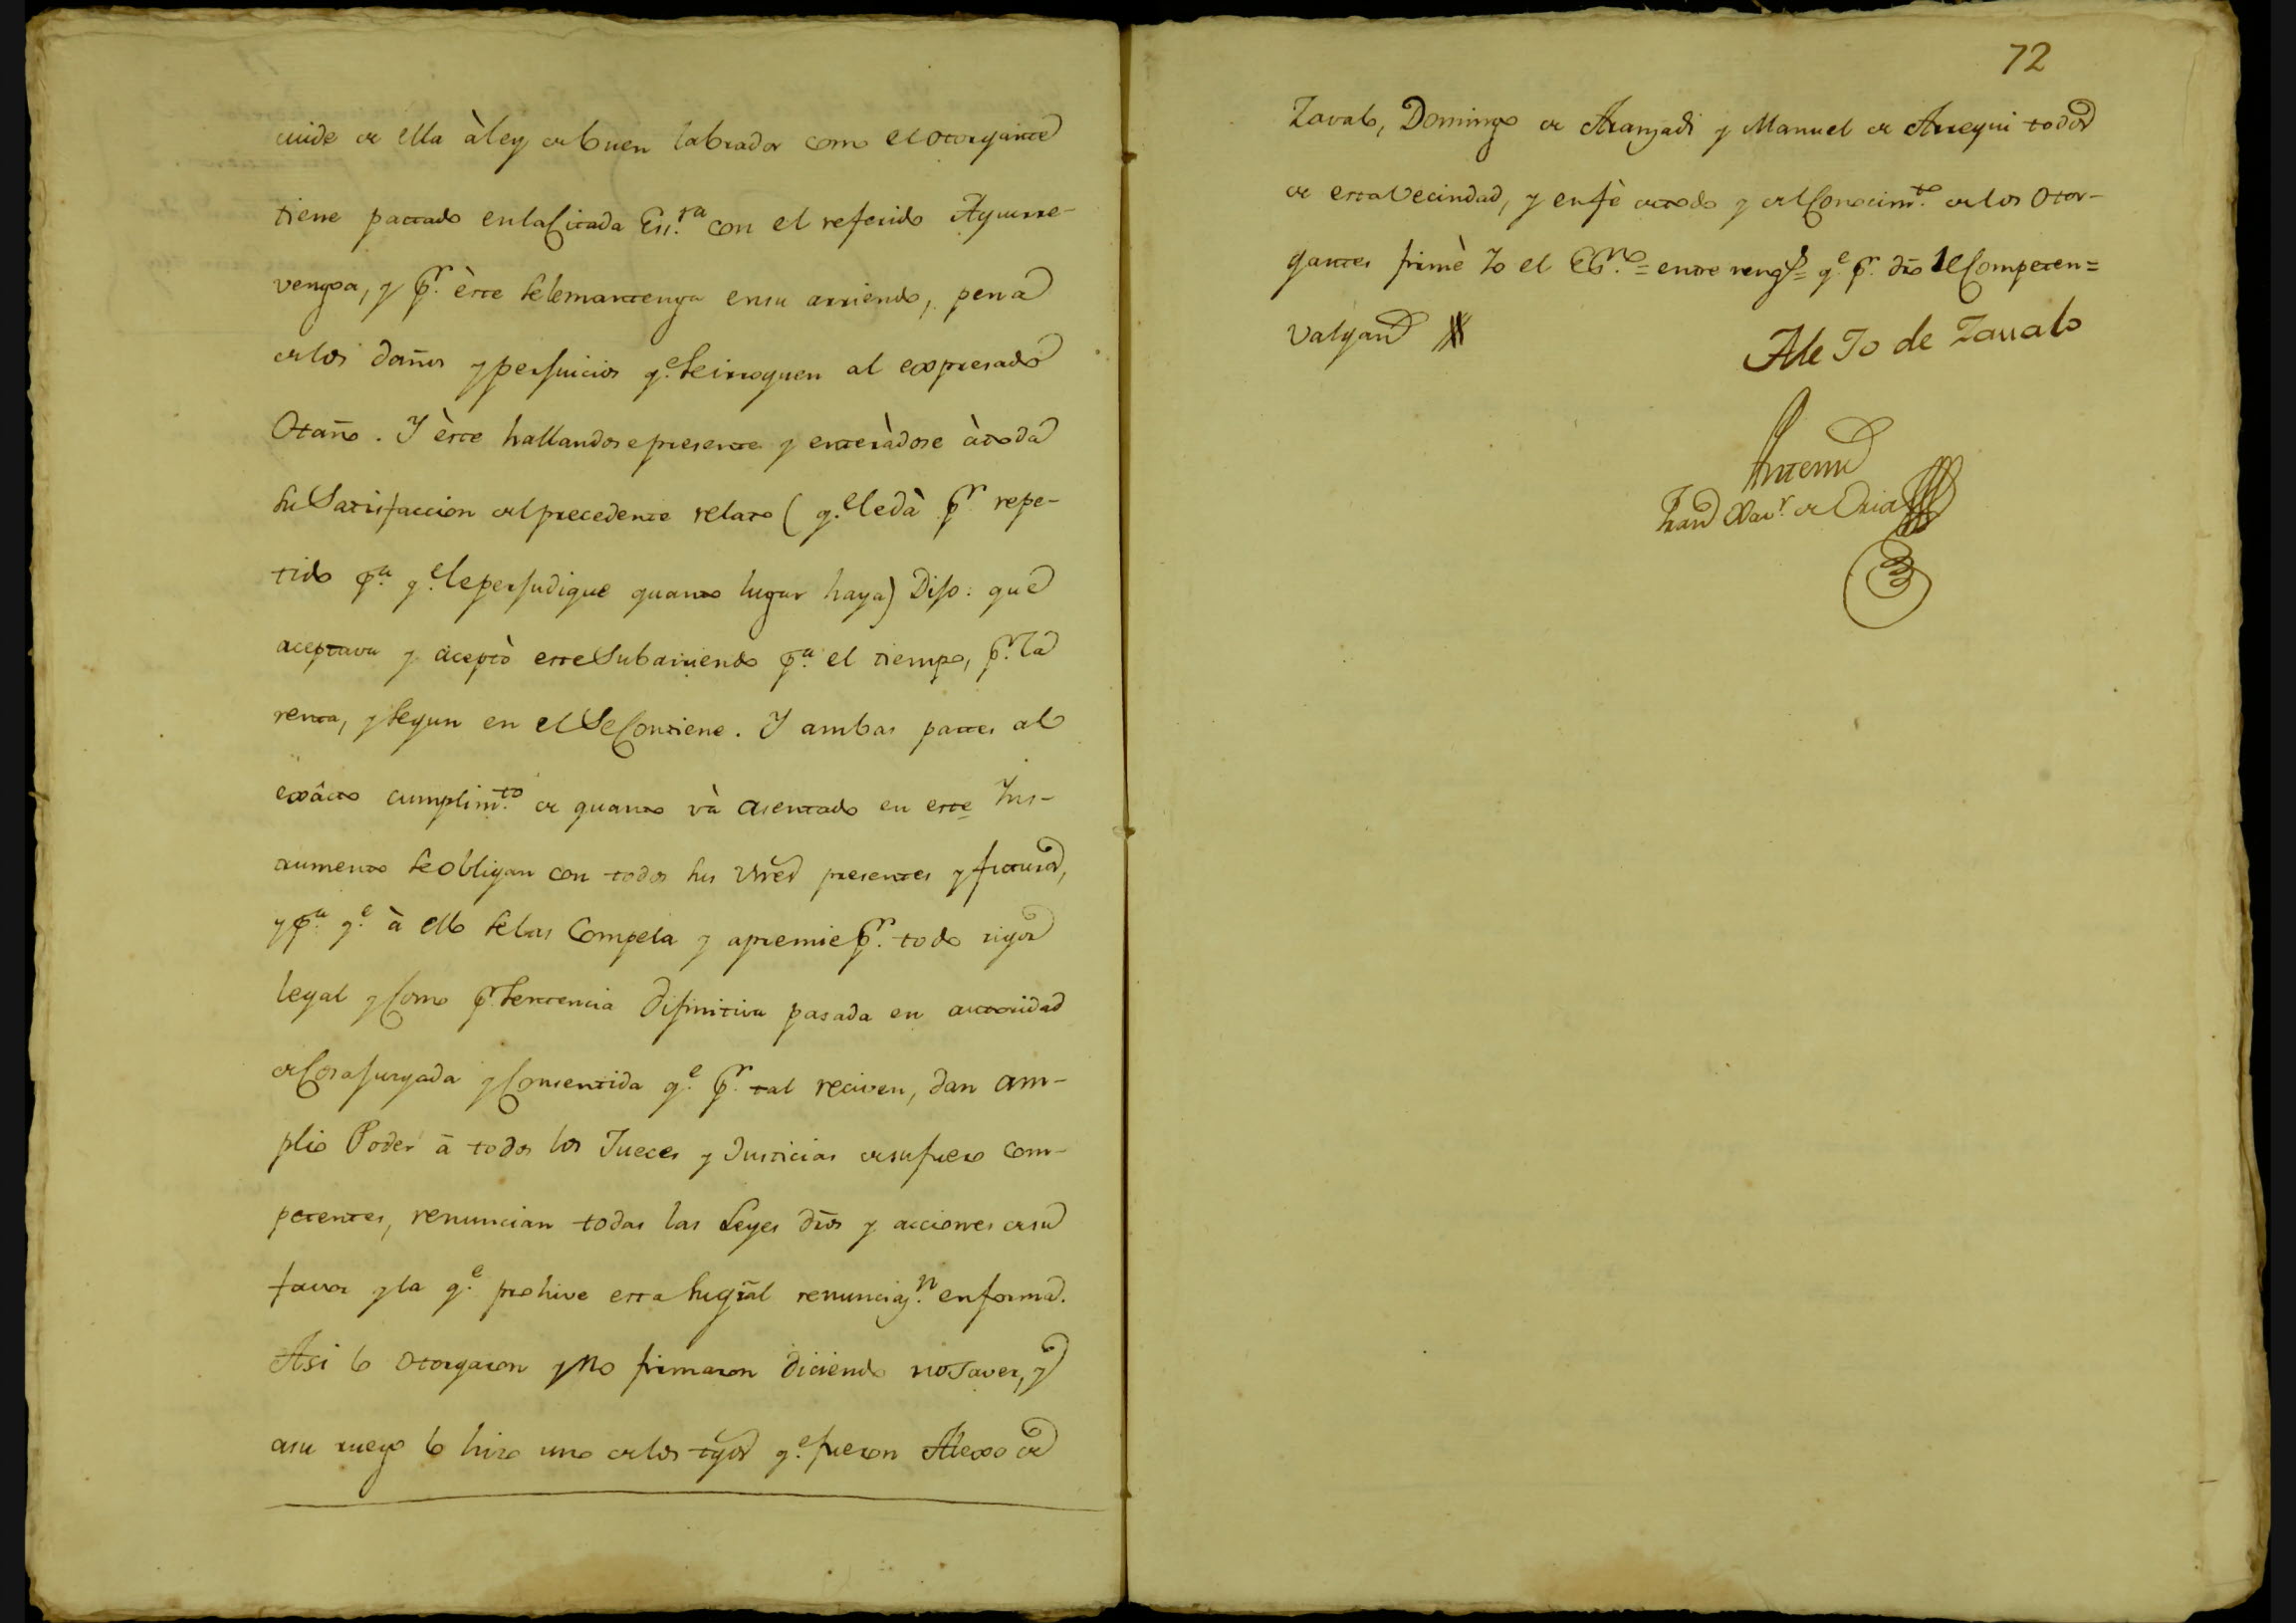 cuide de ella à ley de buen labrador como el otorgante
tiene pactado en la Citada Esc.ra con el referido Aguirre-
vengoa, y p.r èste se le mantenga en su arriendo, pena
de los daños y perjuicios q.e se irroguen al expresado
Otaño. Y èste hallandose presente y enteràdose à toda
su Satisfaccion del precedente relato (q.e le dà p.r repe-
tido p.a q.e le perjudique quanto lugar haya) Dijo: que
aceptava y aceptò este Subarriendo p.a el tiempo, p.r la
renta, y segun en el Se Contiene. Y ambas partes al
exâcto cumplim.to de quanto và asentado en este Ins-
trumento se obligan con todos sus vñes presentes y futuros,
y p.a q.e à ello se las Compela y apremie p.r todo rigor
legal y Como p.r Sentencia difinitiva pasada en autoridad
de Cosa juzgada y Consentida q.e p.r tal reciven, dan am-
plio Poder à todos los Jueces y Justicias de su fuero com-
petentes, renuncian todas las Leyes dros y acciones de su
favor y la q.e prohive esta su gral renunciaz.n en forma.
Asi lo otorgaron y no firmaron diciendo no saver, y
a su ruego lo hizo uno de los tgos q.e fueron Alexo de
72
Zavalo, Domingo de Aranzadi y Manuel de Arregui todos
de esta Vecindad, y en fè de todo y del Conocim.to de los Otor-
gantes firmè Yo el Es.no = entre rengs = q.e p.r dro le Competen =
valgan
Ale Jo de Zaualo
Antemi
Fran Xav.r de Oria